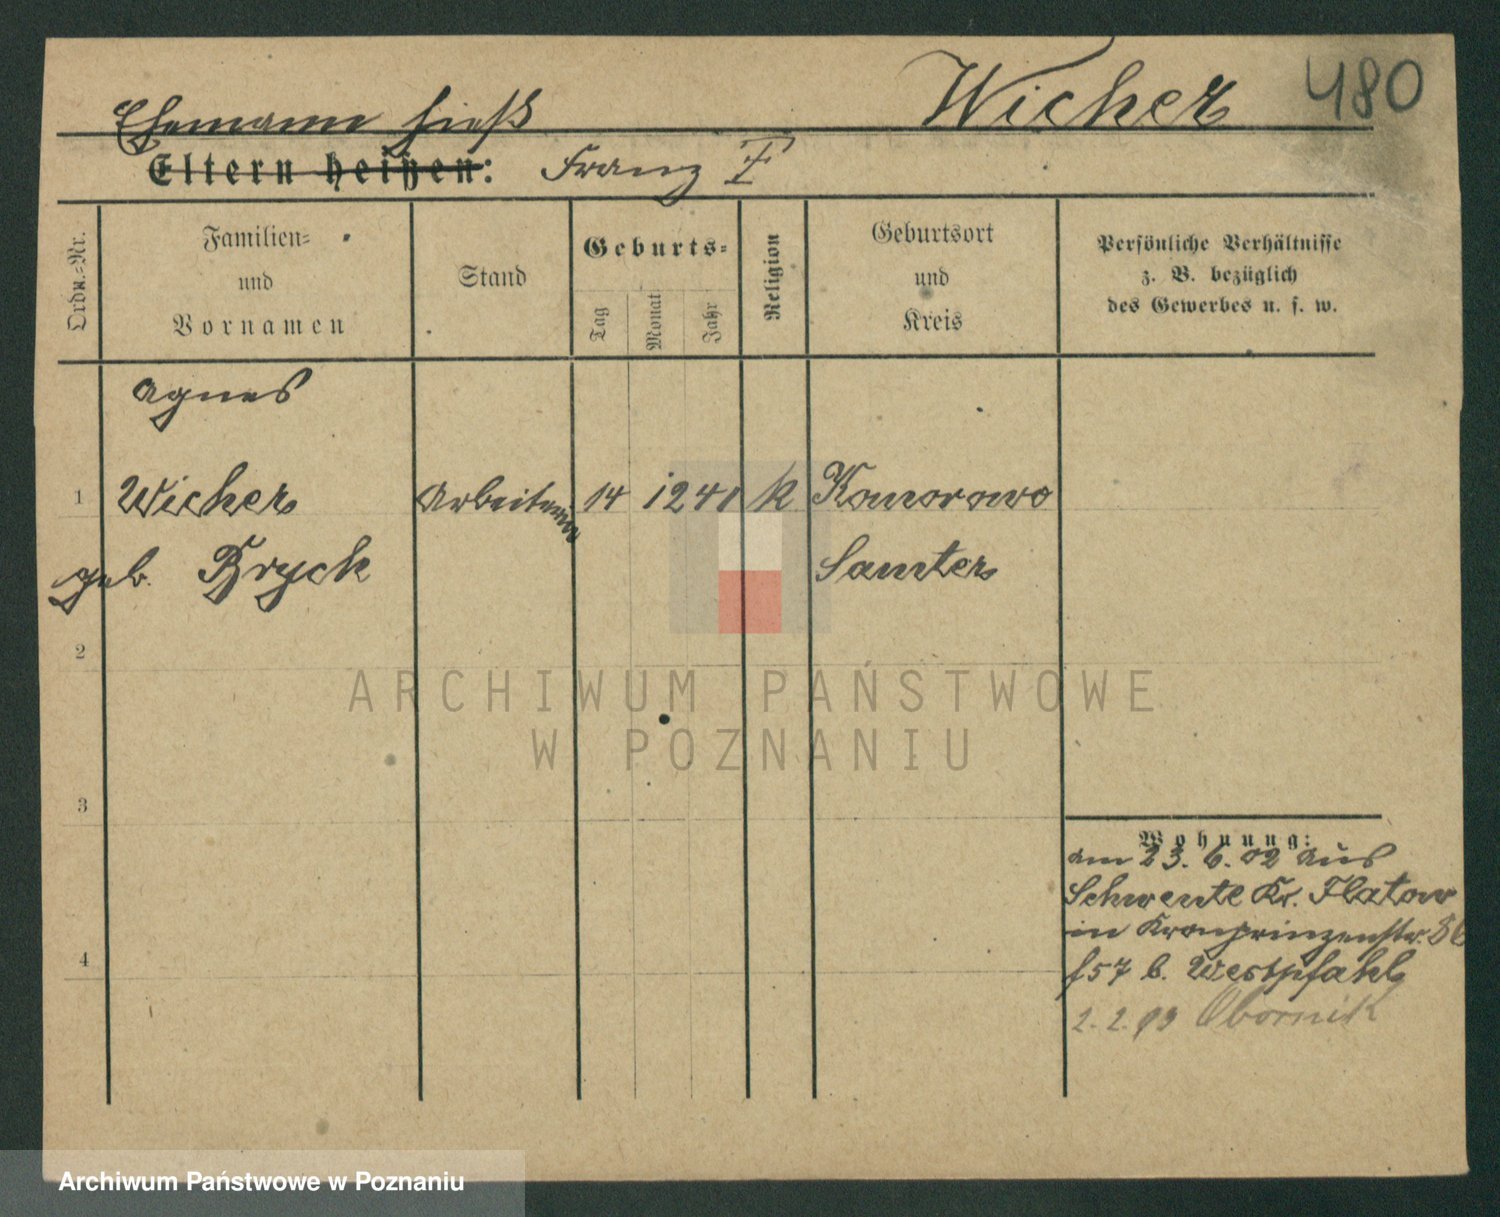 Wicher 480
Ehemann hieß
Eltern heißen: Franz †
Ordn.-Nr.
Familien-
und
Vornamen
Stand
Geburts-
Tag
Monat
Jahr
Religion
Geburtsort
und
Kreis
Persönliche Verhältnisse
z. B. bezüglich
des Gewerbes u. s. w.
Agnes
1 Wicher Arbeiterin 14 12 41 k Komorowo
geb. Bryck Samter
2
ARCHIWUM PAŃSTWOWE
W POZNANIU
3
Wohnung:
am 23.6.02 aus
Schwente Kr. Flatow
in Kronprinzenstr. 86
4
b. Westpfahl
2.2.03 Obornik
Archiwum Państwowe w Poznaniu